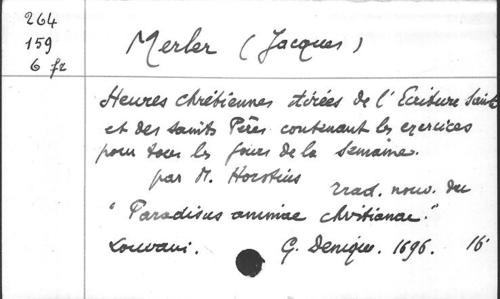 264
159
6 fz
Merler (Jacques)
Heures chrétiennes tirées de l'Ecriture Sainte
et des saints Pères contenant les exercices
pour tous les jours de la semaine.
par M. Horstius
Trad. nouv. du
"Paradisus animae christianae."
Louvain. G. Denique. 1696. 16°